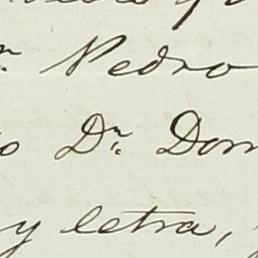 Pedro
Dr. Dom
y letra,